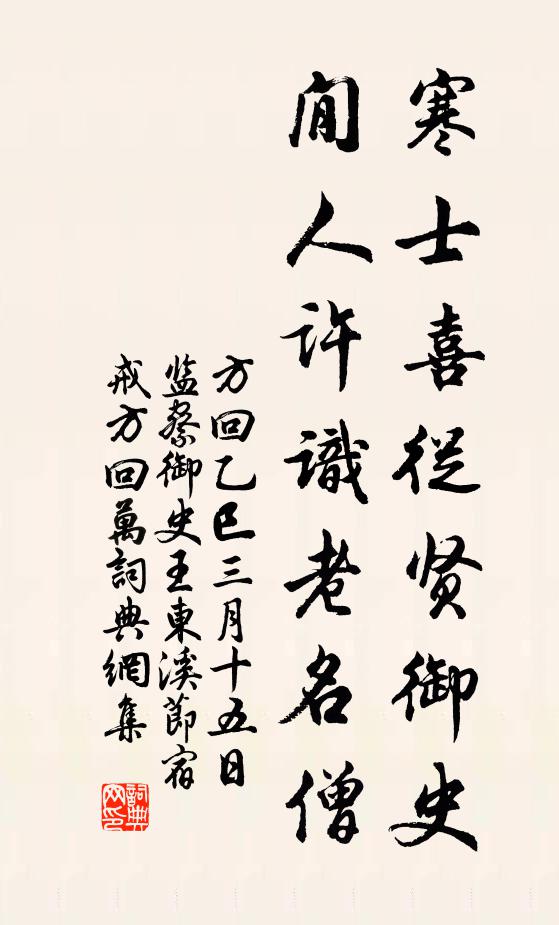 寒士喜從贤御史
閒人许識老名僧
方回乙巳三月十五日
监察御史王東溪節宿
戒方回萬詞典網集
詞典网印